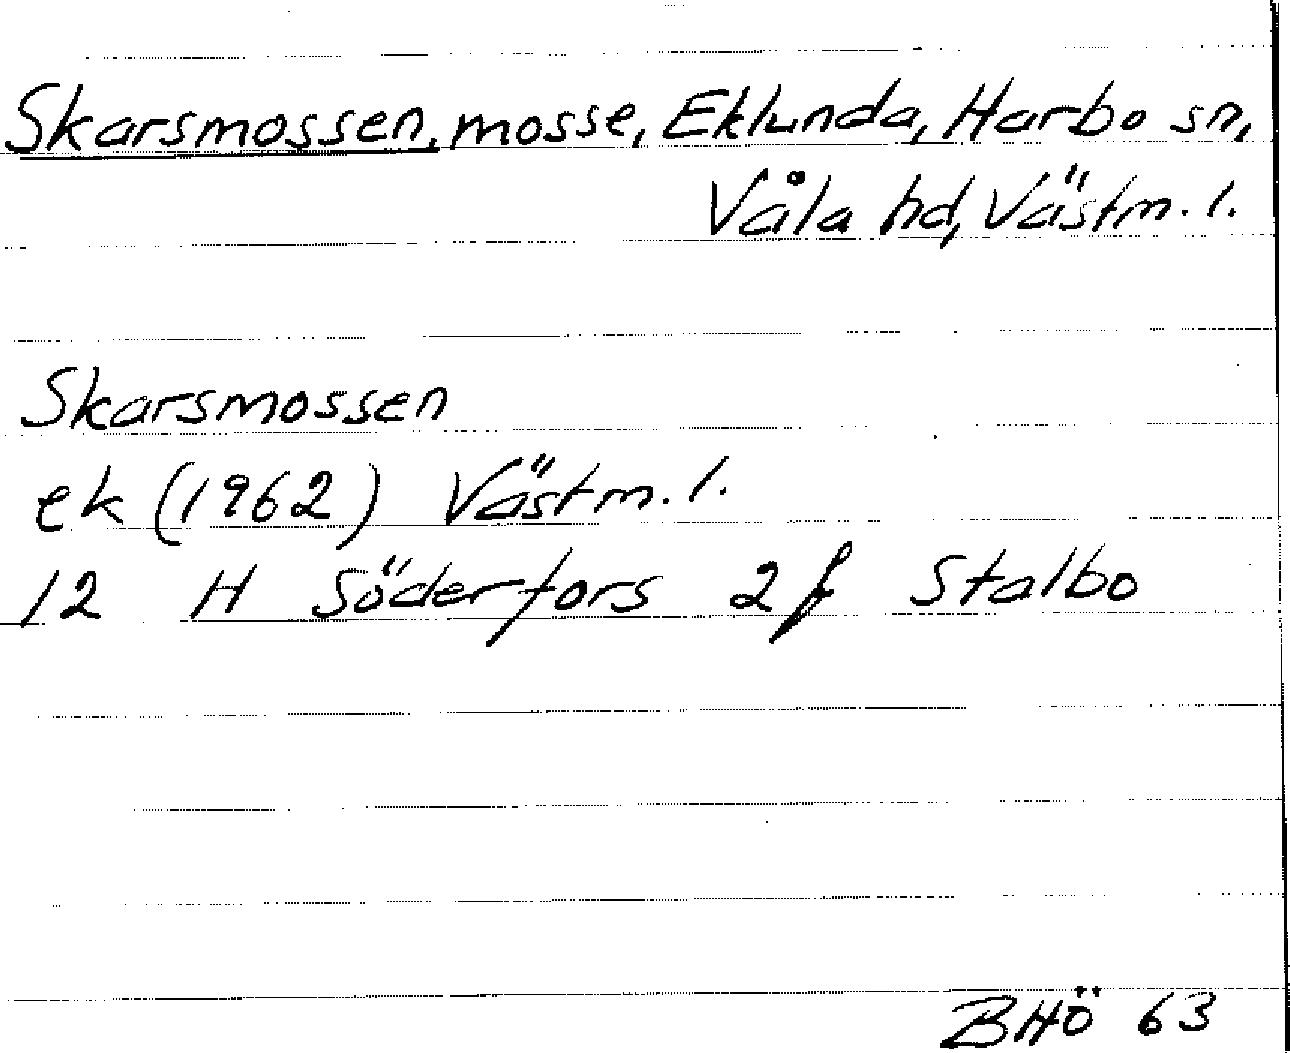 Skarsmossen, mosse, Eklunda, Harbo sn,
Våla hd, Västm. l.
Skarsmossen
ek (1962) Västm. l.
12 H Söderfors 2 f Stalbo
BHÖ 63